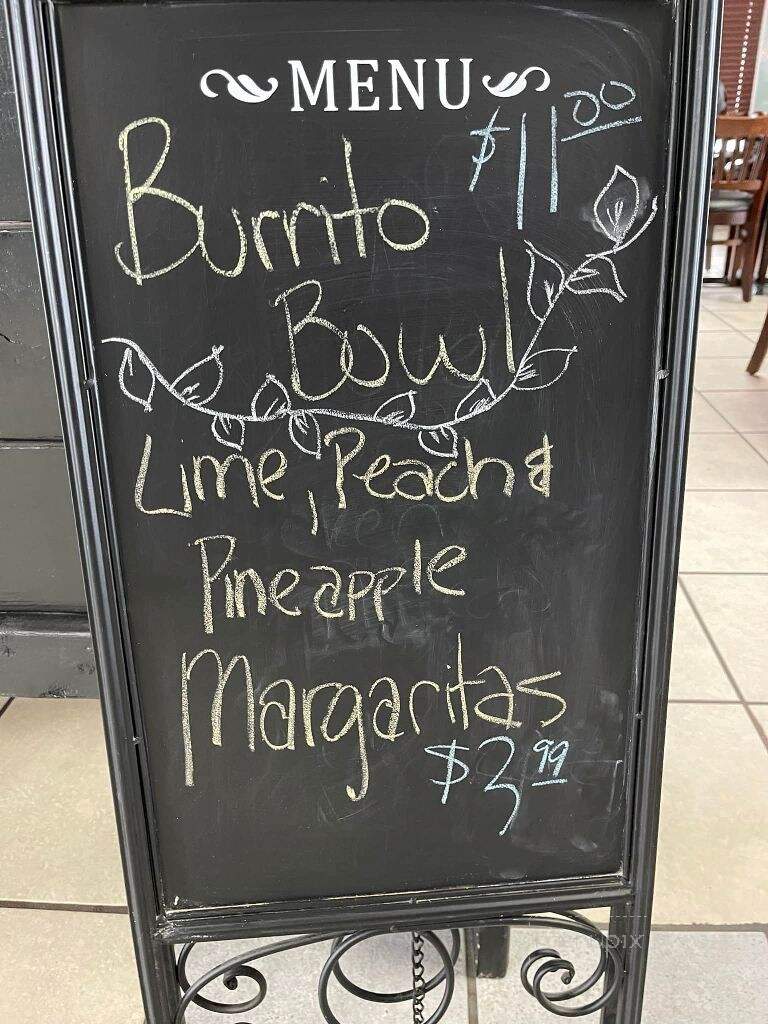 MENU
$11.00
Burrito
Bowl
Lime, Peach &
Pineapple
Margaritas
$3.99